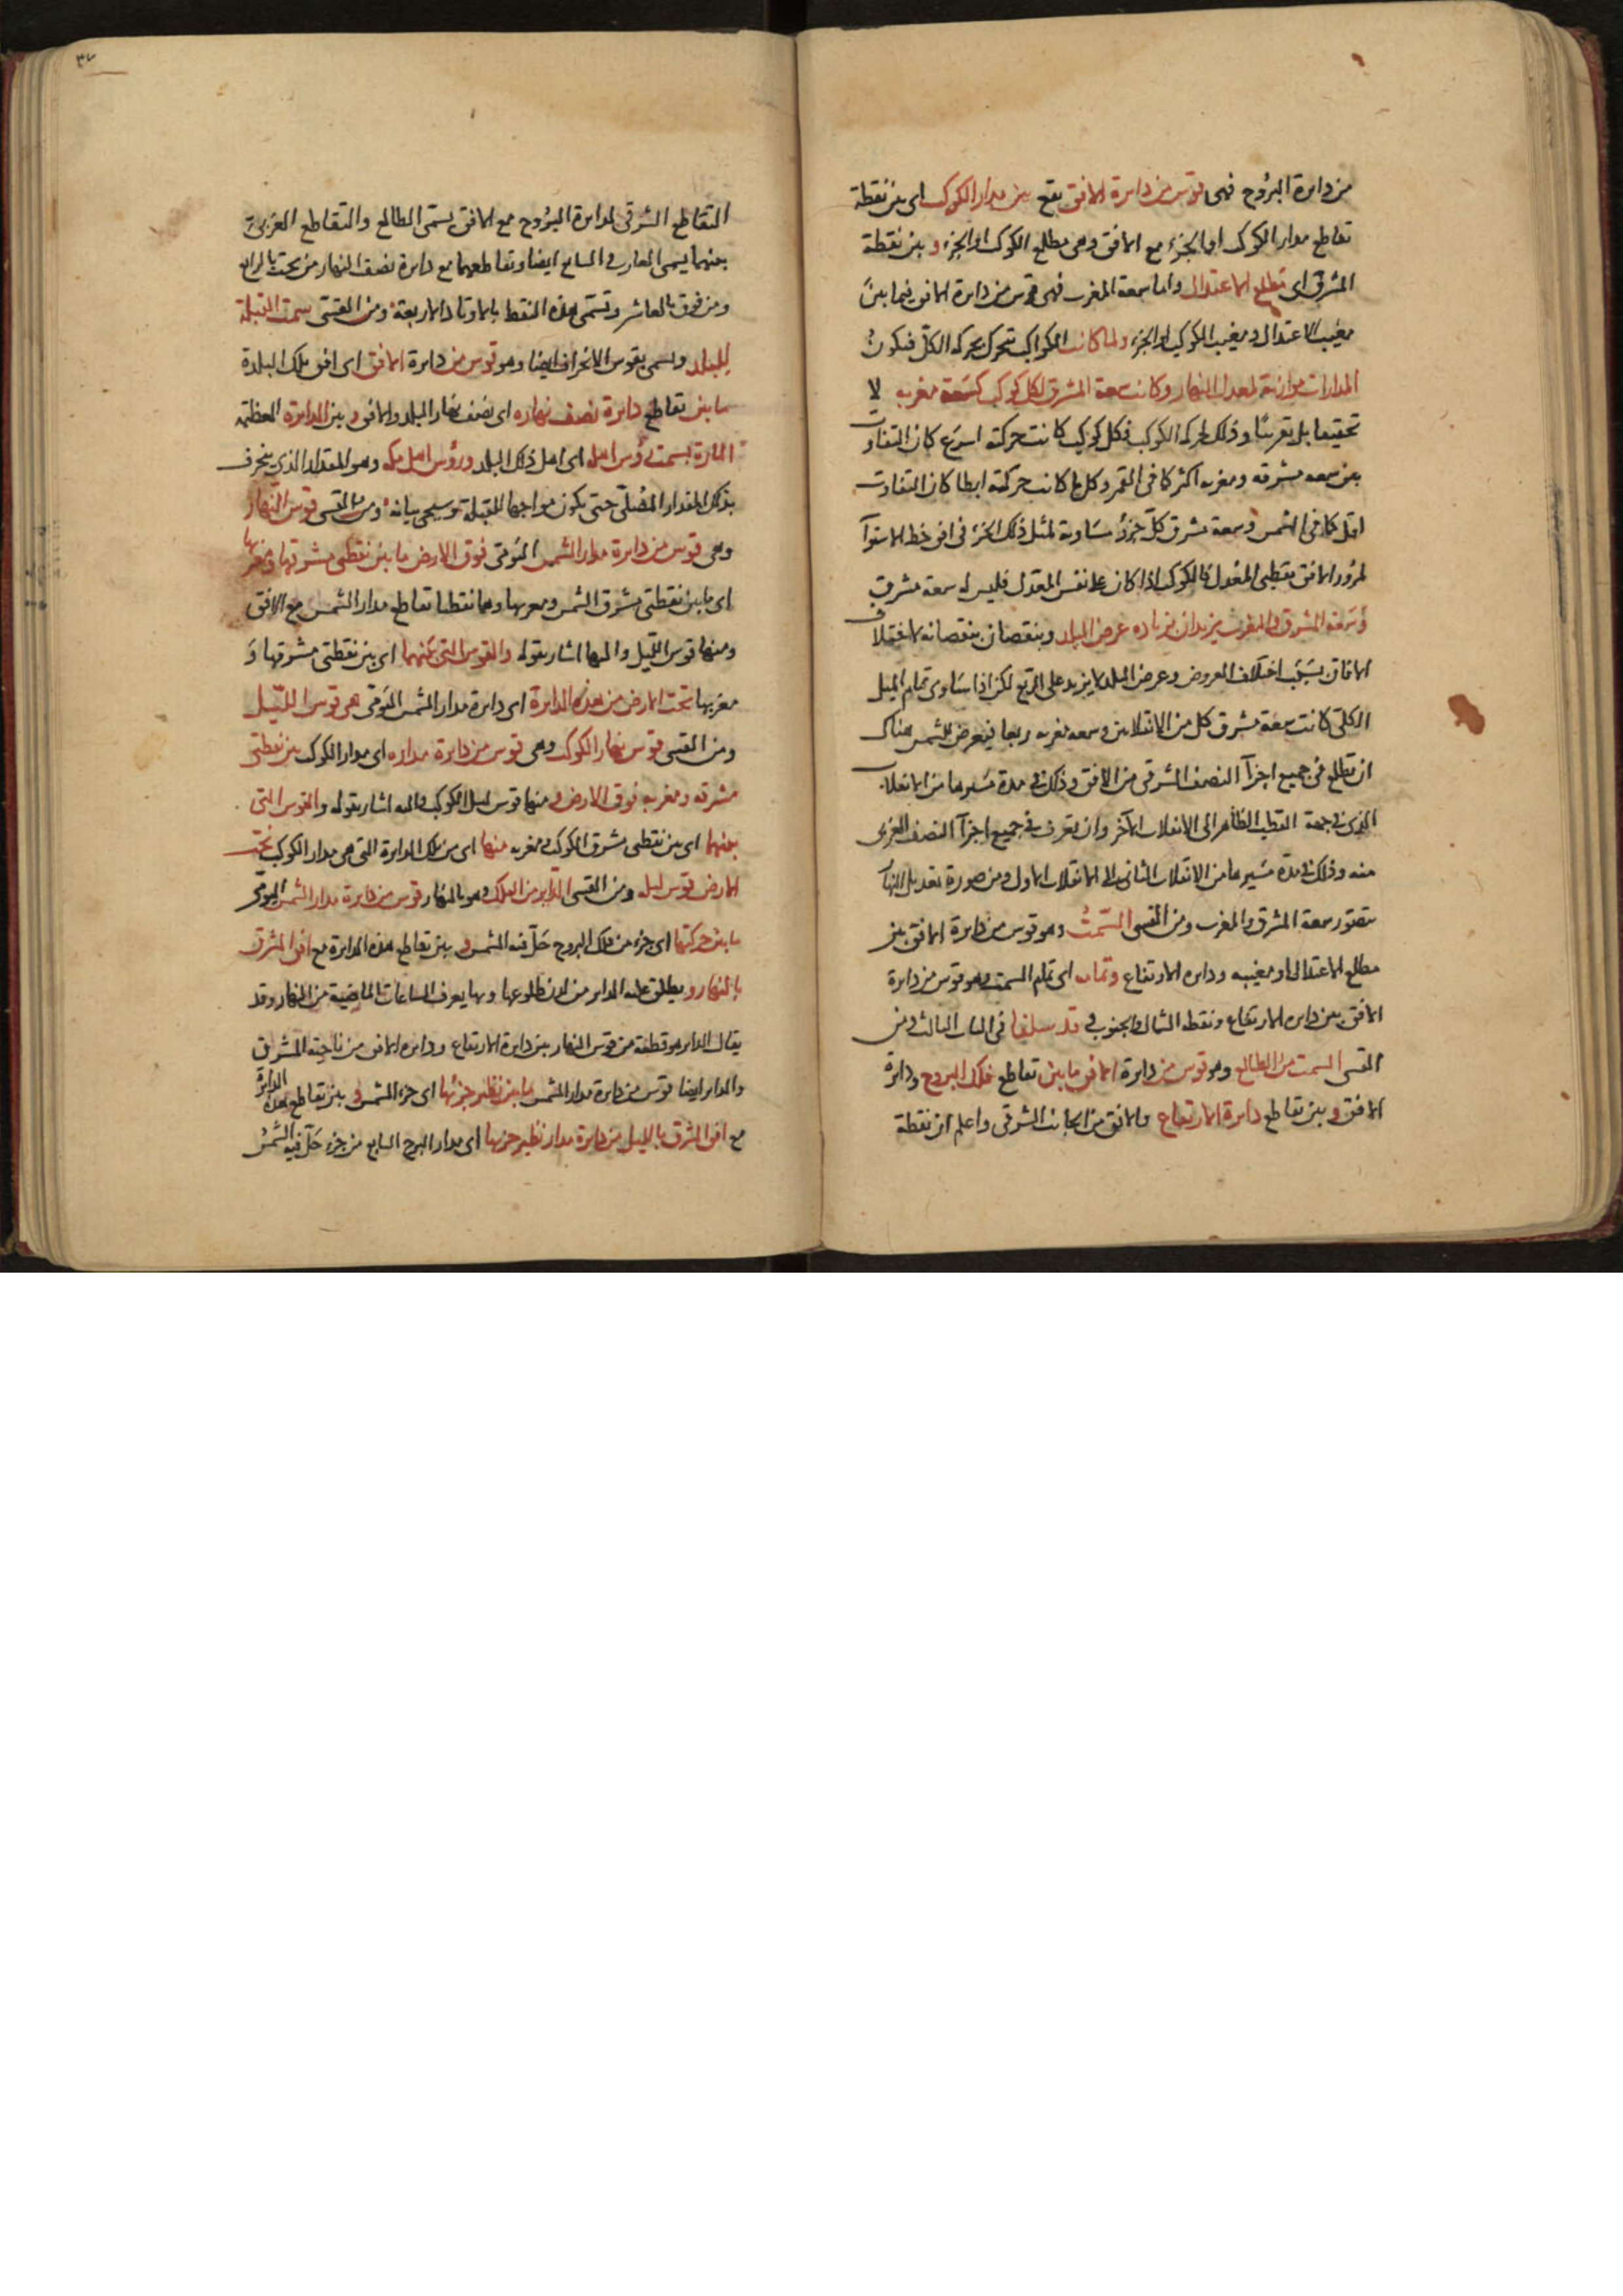 من دائرة البروج فهى قوس من دائرة الافق تقع بين مدار الكوكب اى بين نقطة
تقاطع مدار الكوكب او الجزء مع الافق وهى مطلع الكوكب او الجزء وبين نقطة
المشرق اى مطلع الاعتدال واما سعة المغرب فهى قوس من دايرة الافق فيما بين
مغيب الاعتدال ومغيب الكوكب او الجزء ولما كانت الكواكب تتحرك بحركة الكل فتكون
المدارات موازية لمعدل النهار وكانت سعة المشرق لكل كوكب كسعة مغربه لا
تحقيقا بل تقريبًا وذلك لحركة الكوكب فكل كوكب كانت حركته اسرع كان التفاوت
بين سعه مشرقه ومغربه اكثر كما فى القمر وكل ما كانت حركته ابطا كان التفاوت
اقل كما فى الشمس وسعة مشرق كل جزؤ مساوية لمثل ذلك الجزء فى افق خط الاستوآ
لمرور الافق بقطبى المعدل فالكوكب اذا كان على نفس المعدل فليس له سعة مشرق
وسعة المشرق والمغرب يزيدان بزياده عرض البلد وينقصان بنقصانه لاختلاف
الافاق بسبب اختلاف العروض وعرض البلد لا يزيد على الربع لكن اذا ساوى تمام الميل
الكلى كانت سعة مشرق كل من الانقلابين وسعه مغربه ربعا فيعرض للشمس هناك
ان تطلع فى جميع اجزآ النصف الشرقى من الافق وذلك فى مدة مسيرها من الانقلاب
الذى فى جهة القطب الظاهر الى الانقلاب الآخر وان تغرب فى جميع اجزآ النصف الغربى
منه وذلك فى مدة مسيرها من الانقلاب الثانى الى الانقلاب الاول ومن صورة تعديل النهار
تتصور سعة المشرق والمغرب ومن القسى السمت وهو قوس من دايرة الافق بين
مطلع الاعتدال او مغيبه ودايره الارتفاع وتمامه اى تمام السمت وهو قوس من دايرة
الافق بين دايره الارتفاع ونقطه الشمال والجنوب قد سلفا فى الباب الثالث ومن
القسى السمت من الطالع وهو قوس من دايرة الافق ما بين تقاطع فلك البروج ودايرة
الافق وبين تقاطع دايرة الارتفاع والافق من الجانب الشرقى واعلم ان نقطة
٣٧
التقاطع الشرقى لدايرة البروج مع الافق يسمى الطالع والتقاطع الغربى
بينهما يسمى الغارب والسابع ايضا وتقاطعهما مع دايرة نصف النهار من تحت بالرابع
ومن فوق بالعاشر وتسمى هذه النقط بالاوتاد الاربعة ومن القسى سمت القبلة
للبلد ويسمى بقوس الانحراف ايضا وهو قوس من دايرة الافق اى افق تلك البلدة
ما بين تقاطع دايرة نصف نهاره اى نصف نهار البلد والافق وبين الدايرة العظيمة
المارة بسمت رؤس اهله اى اهل ذلك البلد ورؤس اهل مكه وهو المقدار الذى ينحرف
بذلك المقدار المصلى حتى يكون مواجها للقبلة وسيجى بيانه ومن القسى قوس النهار
وهى قوس من دايرة مدار الشمس اليومى فوق الارض ما بين نقطتى مشرقها ومغربها
اى ما بين نقطتى مشرق الشمس ومغربها وهما نقطتا تقاطع مدار الشمس مع الافق
ومنها قوس الليل واليها اشار بقوله والقوس التى بينهما اى بين نقطتى مشرقها و
مغربها تحت الارض من هذه الدايرة اى دايرة مدار الشمس اليومى هى قوس الليل
ومن القسى قوس نهار الكوكب وهى قوس من دايرة مداره اى مدار الكوكب بين نقطتى
مشرقه ومغربه فوق الارض ومنها قوس ليل الكوكب واليه اشار بقوله والقوس التى
بينهما اى بين نقطتى مشرق الكوكب ومغربه منها اى من تلك الدايرة التى هى مدار الكوكب تحت
الارض قوس ليله ومن القسى الداير من الفلك وهو بالنهار قوس من دايرة مدار الشمس اليومى
ما بين حركتها اى جزء من فلك البروج حل فيه الشمس وبين تقاطع هذه الدايرة مع افق المشرق
بالنهار ويطلق عليه الداير من لدن طلوعها وبها يعرف الساعات الماضية من النهار وقد
يقال الداير هو قطعة من قوس النهار بين دايرة الارتفاع ودايره الافق من ناحية المشرق
والداير ايضا قوس من دايرة مدار الشمس ما بين نظير جزئها اى جزء الشمس وبين تقاطع هذه الدايرة
مع افق المشرق بالليل من دايرة مدار نظير جزيها اى مدار البرج السابع من جزء حل فيه الشمس